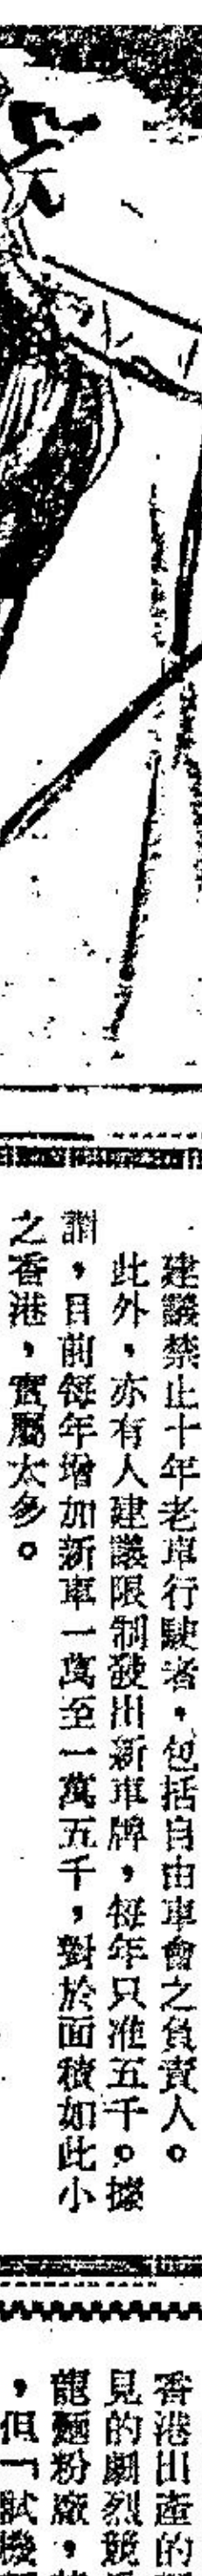 建議禁止十年老車行駛者，包括自由車會之負責人。
此外，亦有人建議限制發出新車牌，每年只准五千。據
謂，目前每年增加新車一萬至一萬五千，對於面積如此小
之香港，實屬太多。
香港出產的
見的劇烈競
龍麵粉廠，
，但「試機